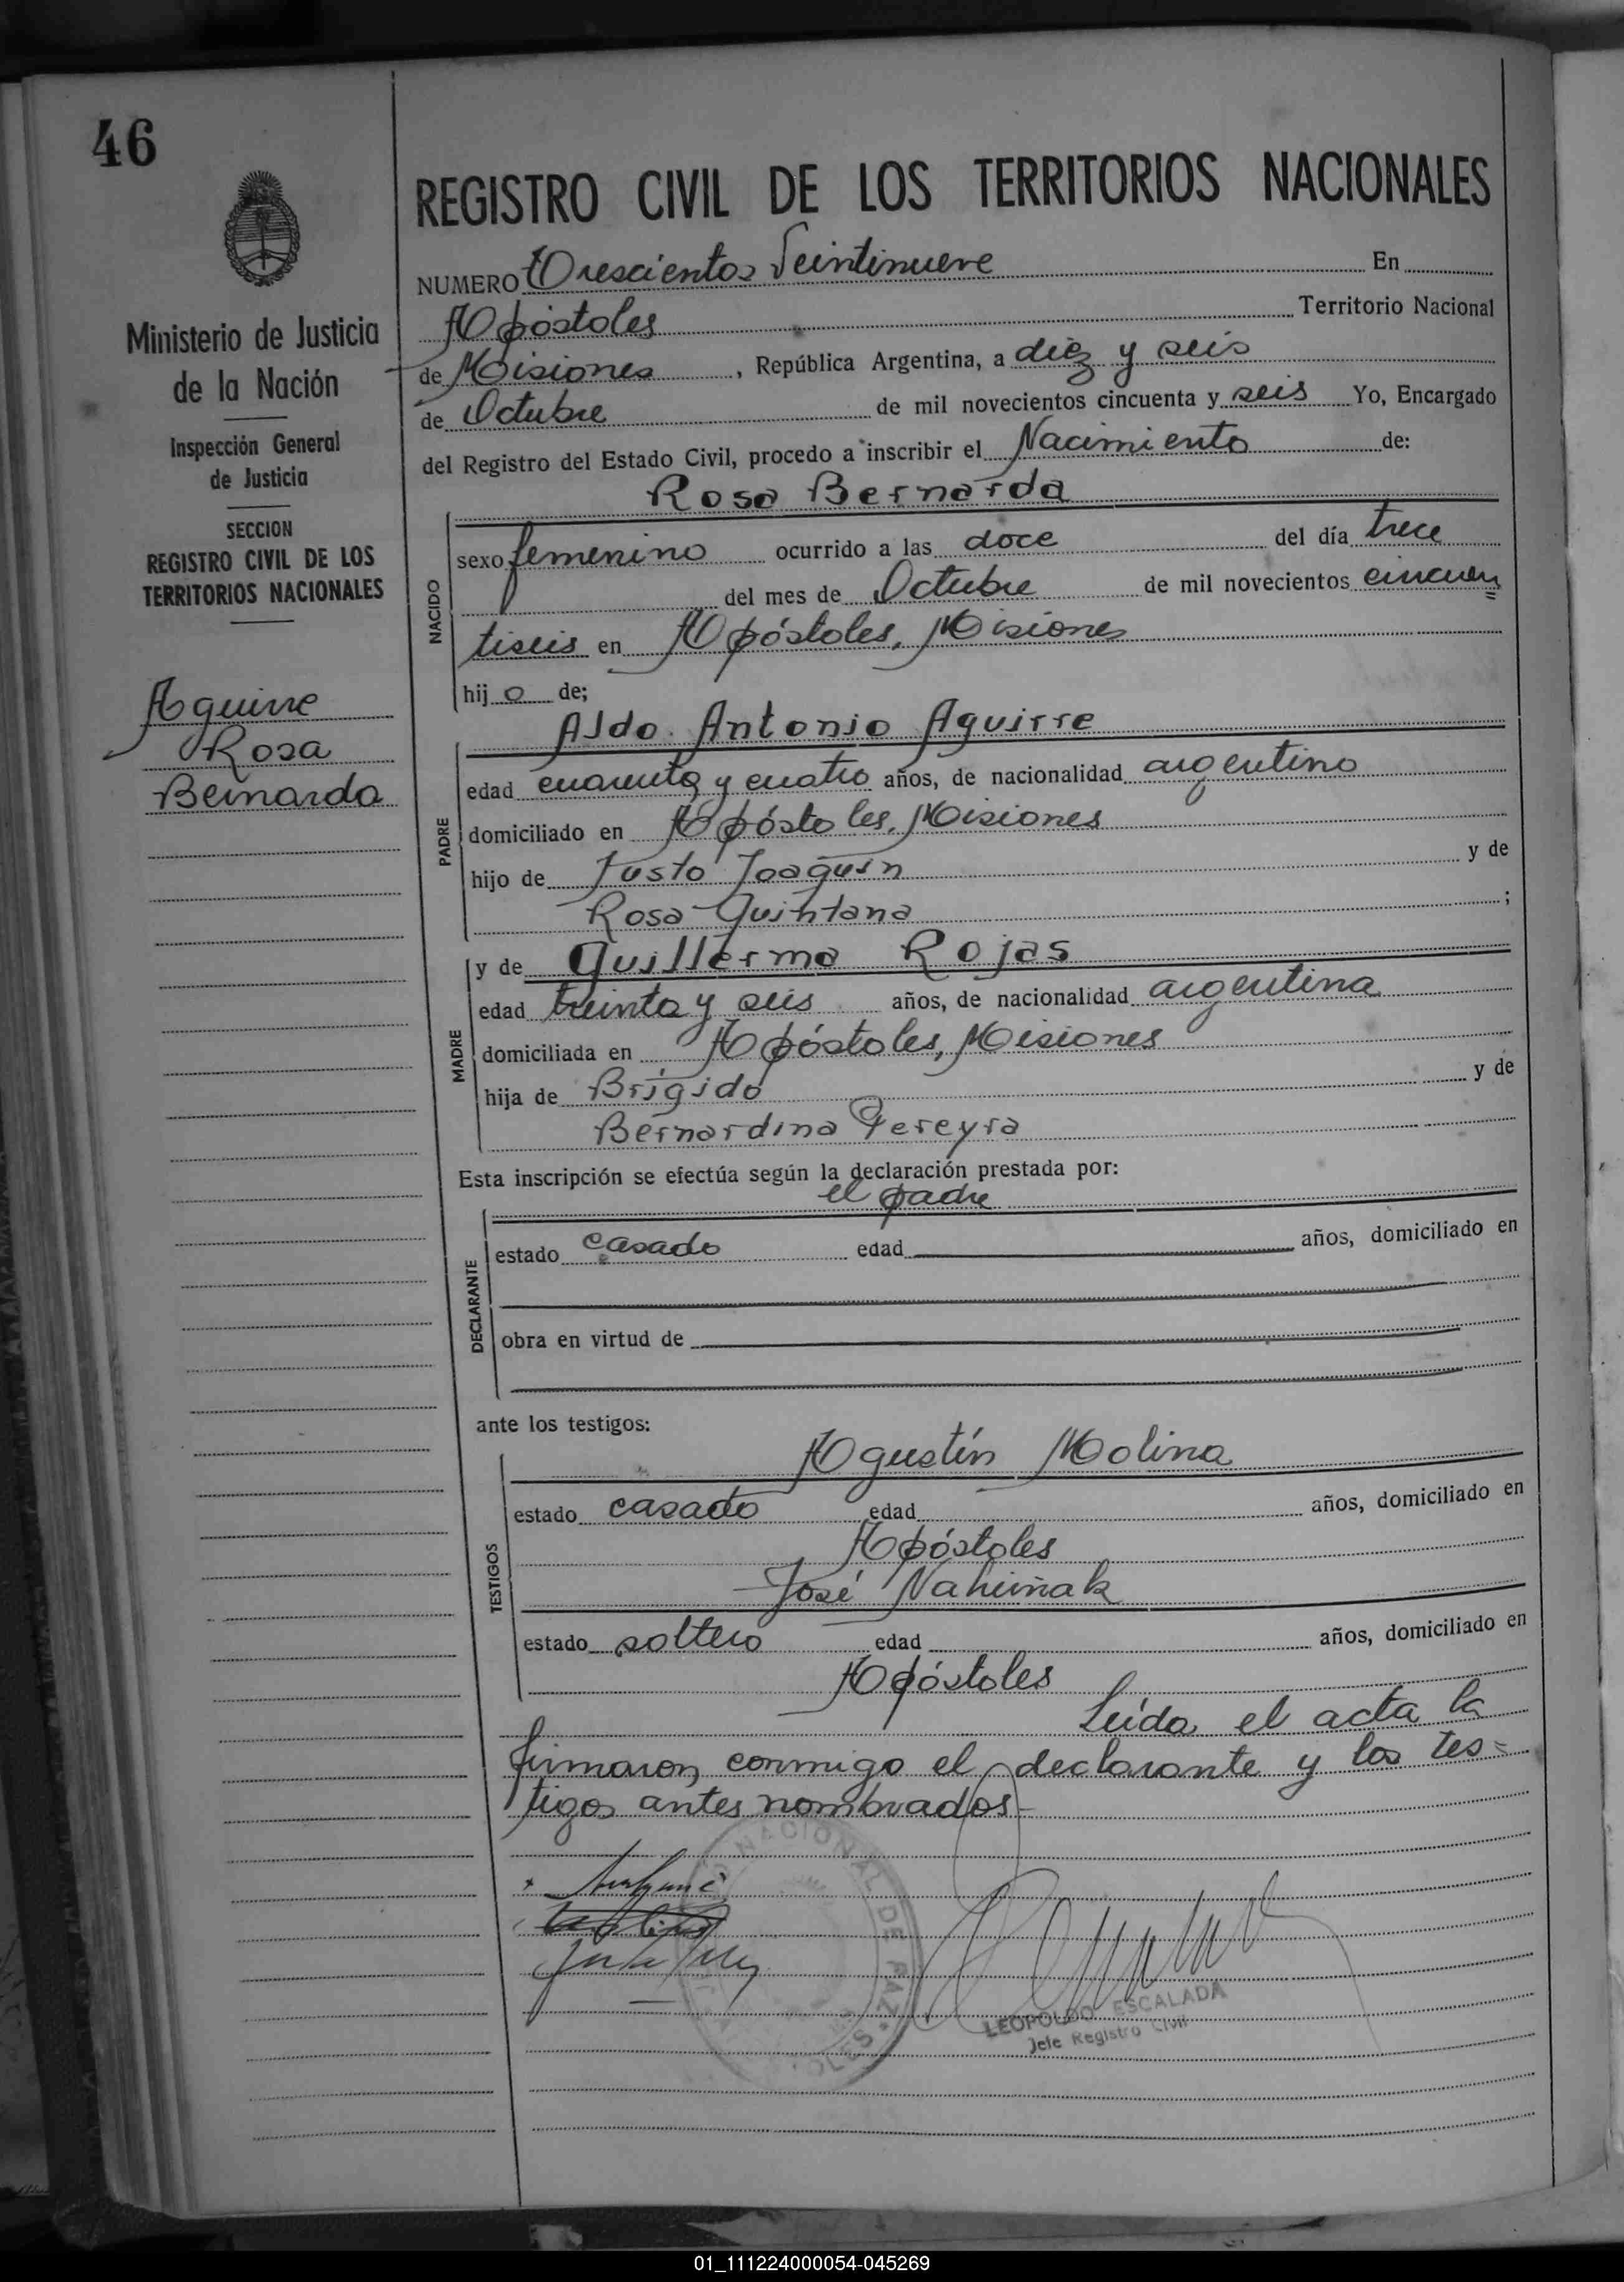 46
REGISTRO CIVIL DE LOS TERRITORIOS NACIONALES
NUMERO Trescientos Veintinueve En
Apóstoles Territorio Nacional
de Misiones, República Argentina, a diez y seis
de Octubre de mil novecientos cincuenta y seis Yo, Encargado
del Registro del Estado Civil, procedo a inscribir el Nacimiento de:
Rosa Bernarda
Ministerio de Justicia
de la Nación
Inspección General
de Justicia
SECCION
REGISTRO CIVIL DE LOS
TERRITORIOS NACIONALES
Aguirre
Rosa
Bernarda
NACIDO
sexo femenino ocurrido a las doce del día trece
del mes de Octubre de mil novecientos cincuen
tiseis en Apóstoles, Misiones
hij a de;
PADRE
Aldo Antonio Aguirre
edad cuarenta y cuatro años, de nacionalidad argentino
domiciliado en Apóstoles, Misiones
hijo de Justo Joaquín y de
Rosa Quintana ;
MADRE
y de Guillerma Rojas
edad treinta y seis años, de nacionalidad argentina
domiciliada en Apóstoles, Misiones
hija de Brígido y de
Bernardina Pereyra
Esta inscripción se efectúa según la declaración prestada por:
DECLARANTE
el padre
estado casado edad años, domiciliado en
obra en virtud de
ante los testigos:
TESTIGOS
Agustín Molina
estado casado edad años, domiciliado en
Apóstoles
José
estado soltero edad años, domiciliado en
Apóstoles
Leída el acta la
firmaron conmigo el declarante y los tes=
tigos antes nombrados-
NACIONAL DE PAZ
LEOPOLDO ESCALADA
Jefe Registro Civil
01_111224000054-045269